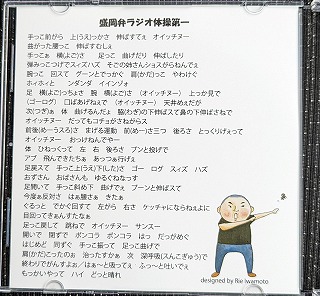 盛岡弁ラジオ体操第一
手っこ前がら 上(うえ)っかさ 伸ばすてぇ オイッチヌー
曲がった腰っこ 伸ばすむしぇ
手っこぉ 横(よご)さ 足っこ 曲げだり 伸ばしたり
弾みっこつけでスィズハズ そごの姉さんショスがらねんでぇ
腕っこ 回スて グーンとでっかぐ 肩(かだ)っこ やわけぐ
ホィホィと ンダンダ イインゾォ
足 横(よご)っちょさ 腕 横(よご)さ (オイッチヌー) 上っか見で
(ゴーログ) 口ばあげねぇで (オイッチヌー) 天井めぇだが
次(つぎ)ぁ 体るんだよ 脇(わぎ)の下伸ばスて鼻の下伸ばさねで
オイッチヌー だってもコチョがさねがらス
前後(めーうスろ)さ まげる運動 前(めー)さ三つ 後ろさ とっくりげぇって
オイッチヌー おっけねんでやー
体 ひねっくって 左 右 後ろさ ブンと投げで
アブ 飛んできたぢぁ あっつぁ行げぇ
足戻スて 手っこ上(うえ)下(した)さ ゴー ログ スィズ ハズ
おずさん おばさんも ゆるぐねなっす
足開いて 手っこ斜め下 曲げでぇ ブーンと伸ばスて
今度ぁ反対さ はぁ腰さぁ きたぁ
ぐるっと でかぐ回すて 左がら 右さ ケッチャにならねぇよに
目回ってきぁんすたなぁ
足っこ戻して 跳ねで オイッチヌー サンスー
開いで 閉ずで ポンコラ ポンコラ はっ だっがめぐ
はじめど 同ずぐ 手っこ振って 足っこ曲げで
肩(かだ)こだったのぉ 治ったすかぁ 次 深呼吸(スんこぎゅう)で
終わりでがんすよぉ／はぁ～と吸ってぇ ふぅ～と吐いでぇ
もっかいやって ハイ どっと晴れ
designed by Rie Iwamoto